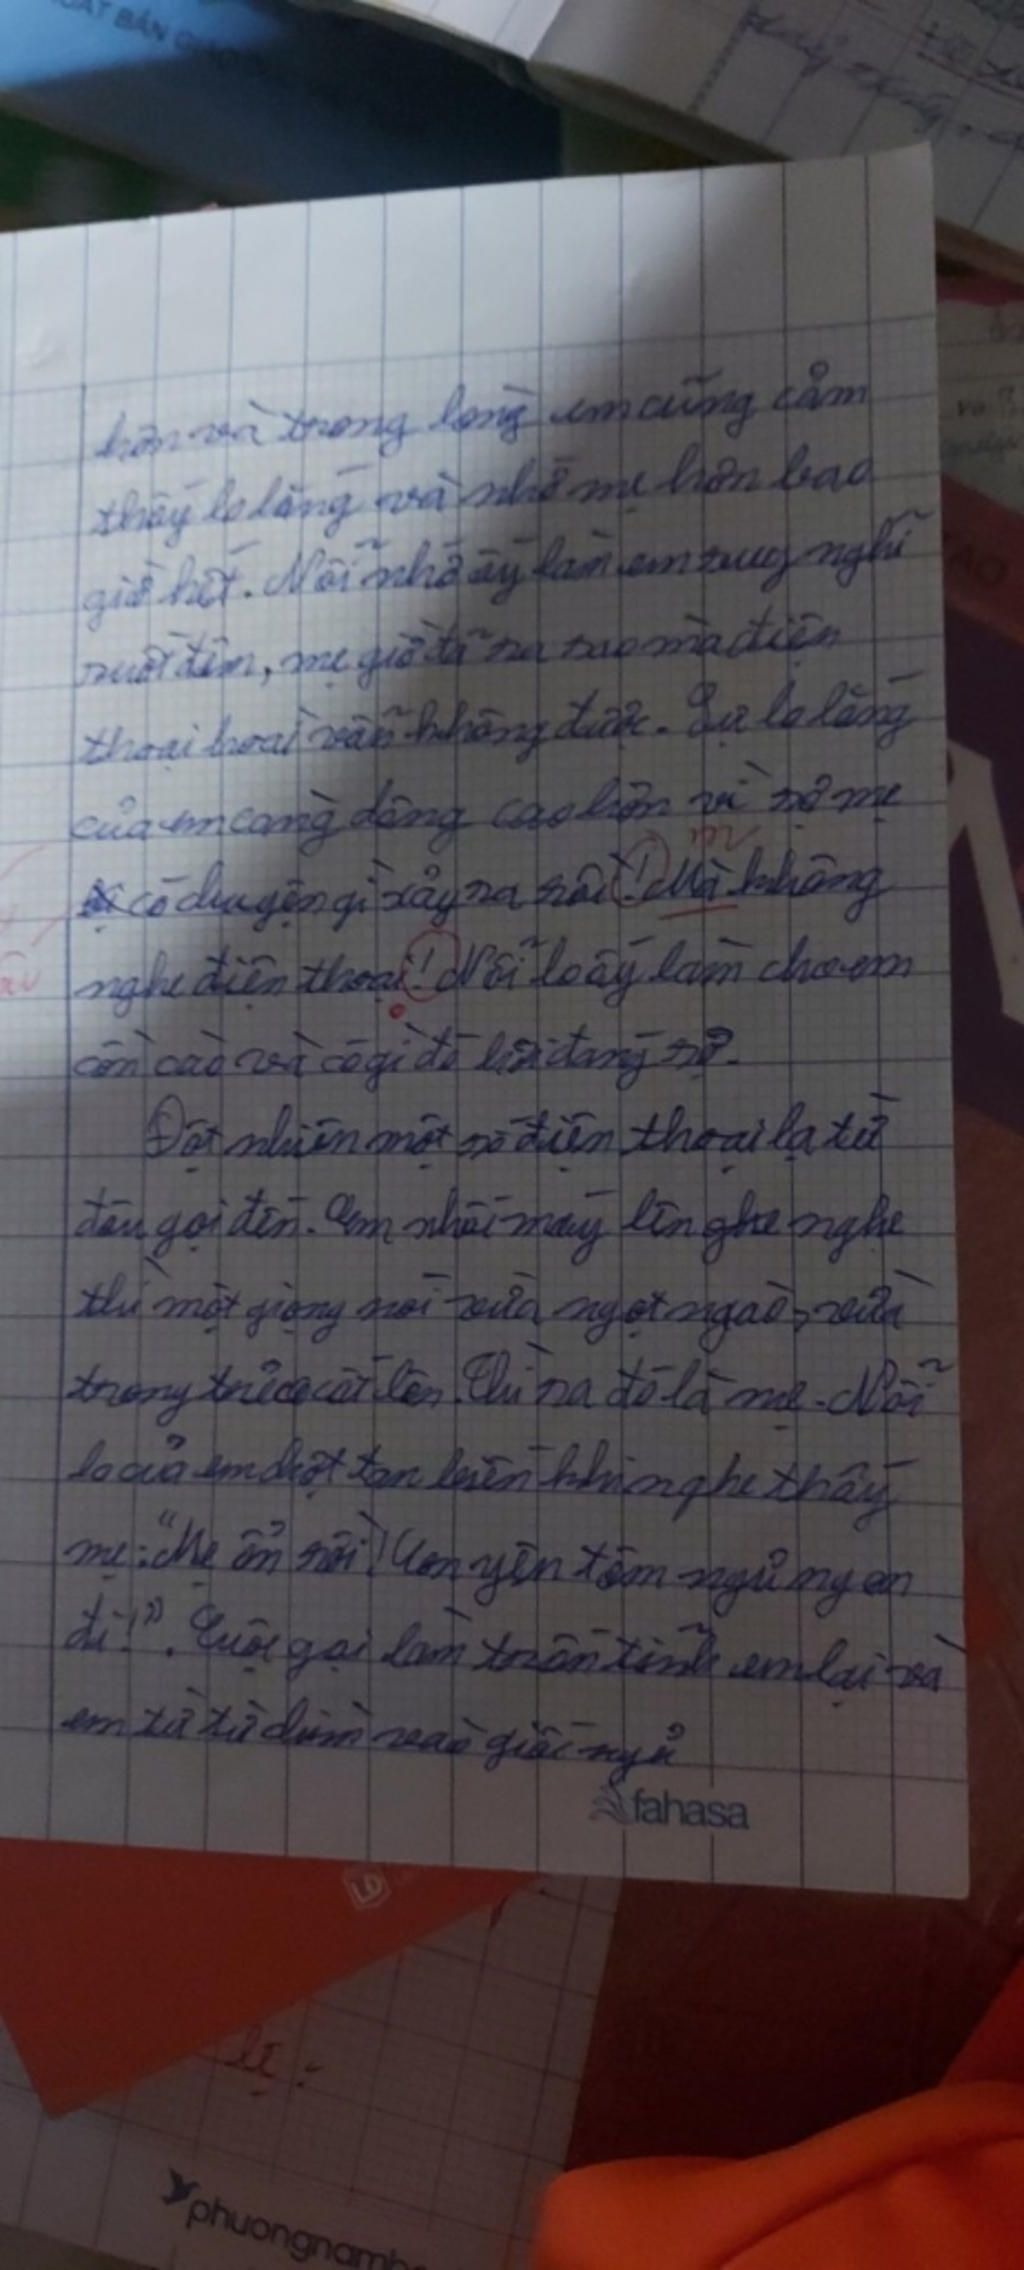 XUẤT BẢN GIÁO
hơn và trong lòng em cũng cảm
thấy lo lắng và nhớ mẹ hơn bao
giờ hết. Nỗi nhớ ấy làm em suy nghĩ
suốt đêm, mẹ giờ đã ra sao mà điện
thoại hoài vẫn không được. Sự lo lắng
của em càng dâng cao hơn vì sợ mẹ
có chuyện gì xảy ra rồi! Mà không
nghe điện thoại! Nỗi lo ấy làm cho em
cồn cào và có gì đó hơi đáng sợ.
Đột nhiên một số điện thoại lạ từ
đâu gọi đến. Em nhấc máy lên nghe
thì một giọng nói vừa ngọt ngào, vừa
trong trẻo cất lên. Thì ra đó là mẹ. Nỗi
lo của em chợt tan biến khi nghe thấy
mẹ: "Mẹ ổn rồi! Con yên tâm ngủ ngon
đi!". Cuộc gọi làm trấn tĩnh em lại và
em từ từ chìm vào giấc ngủ
fahasa
lị:
phuongnamb